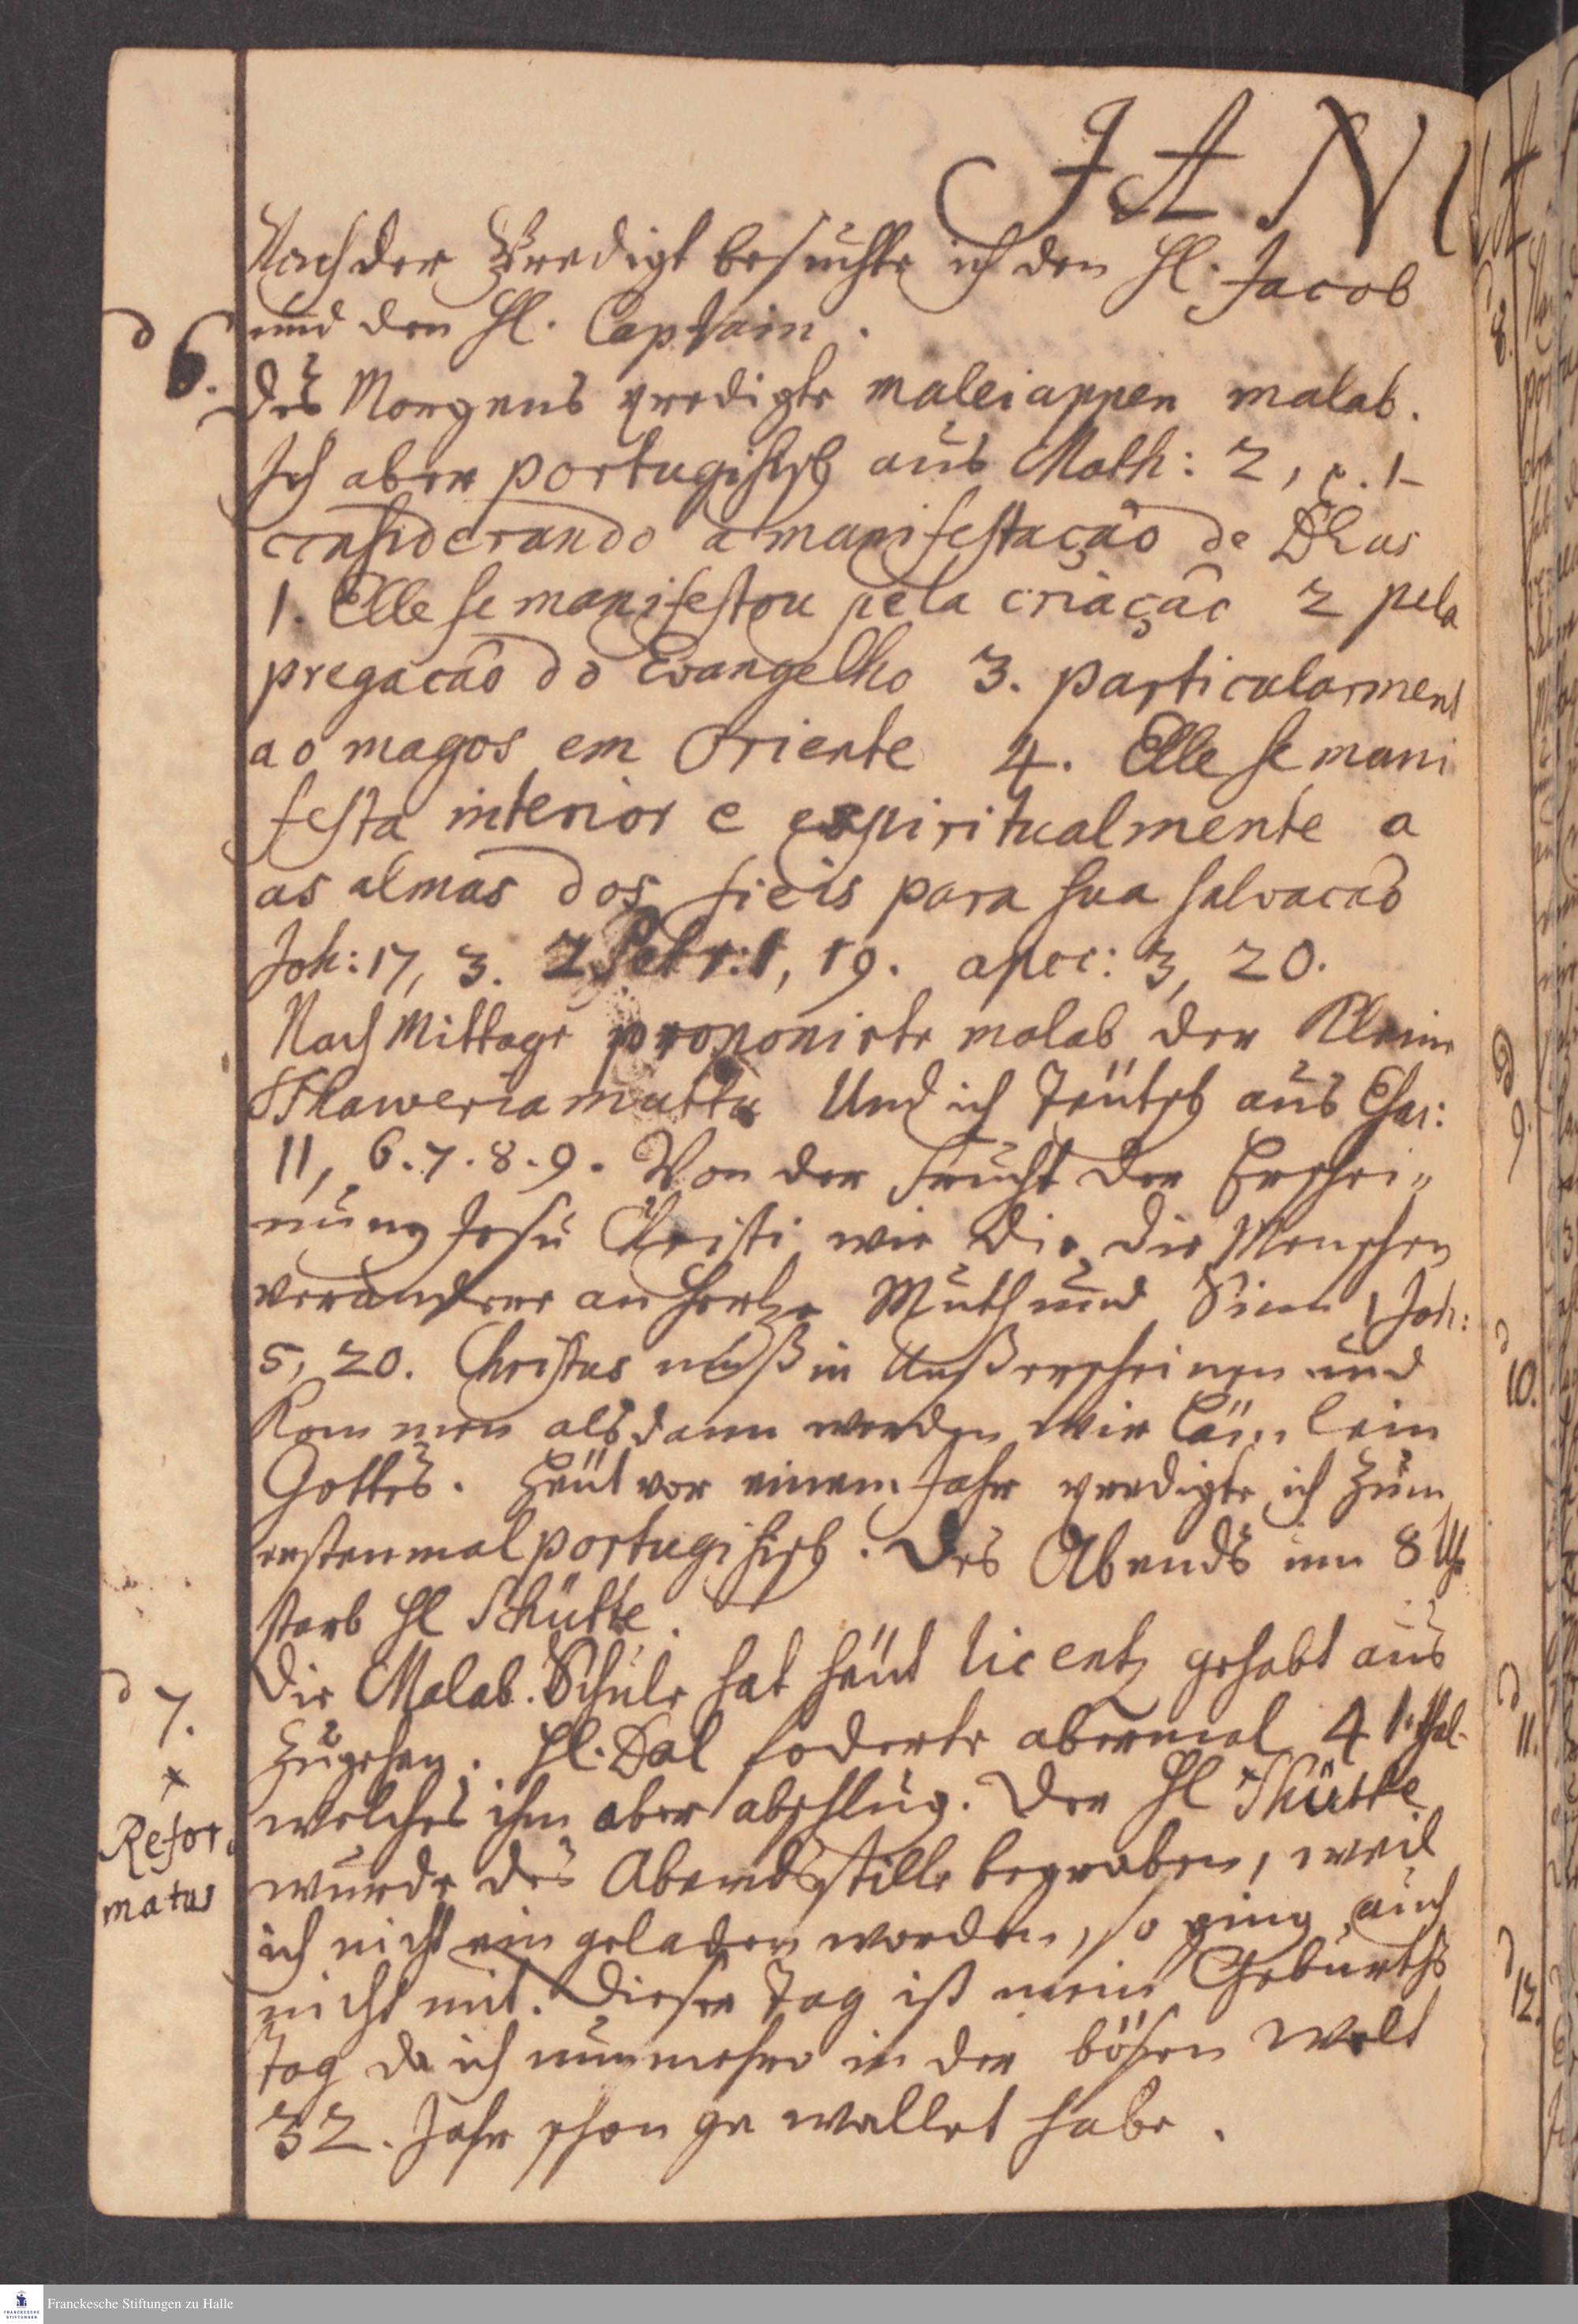 JANU
Nach der Predigt besuchte ich den Hl. Jacob
und den Hl. Captain.
d 6. Des Morgens predigte maleiappen malab.
Ich aber portugisisch aus Math: 2, v. 1-
considerando a manifestação de DEus
1. Elle se manifestou pela criação 2 pela
pregacaõ do Evangelho 3. particularment
ao magos em Oriente 4. Elle se mani
festa interior e espiritualmente a
as almas dos fieis para sua salvacaõ
Joh: 17, 3. 2 Petr: 1, 19. apoc: 3, 20.
Nach Mittage proponirte malab der Kleine
Schaweriamuttu Und ich Teütsch aus Esai:
11, 6. 7. 8. 9. Von der Frucht der Erschei„
nung Jesu Christi wie die die Menschen
verändere an Hertze Muth und Sinn 1 Joh:
5, 20. Christus muß in Unß erscheinen und
Kommen alsdann werden wir Läm̄lein
Gottes. Heüt vor einem Jahr predigte ich zum
erstenmal portugisisch. Des Abends um 8 Uhr
starb Hl Schütte.
d 7. Die Malab. Schule hat heüt licentz gehabt aus
zugehen. Hl. Dal foderte abermal 4 rthal.
welches ihm aber abschlug. Der Hl Schütte
+ Refor„
matus
wurde des Abends stille begraben, weil
ich nicht ein geladen worden, so ging auch
nicht mit. Dieser Tag ist mein Geburths
tag da ich nunmehro in der bösen Welt
32. Jahr schon ge wallet habe.
8.
9.
10.
11.
12.
Franckesche Stiftungen zu Halle